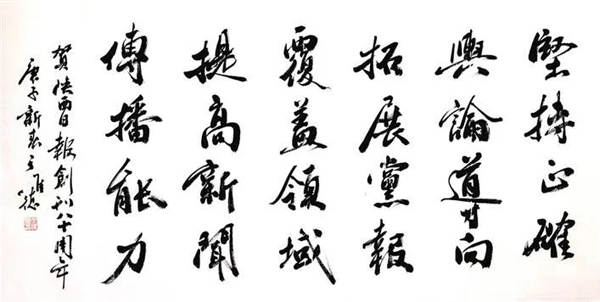 堅持正確
輿論導向
拓展黨報
覆蓋領域
提高新聞
傳播能力
賀陕西日報創刊八十周年
庚子新春王